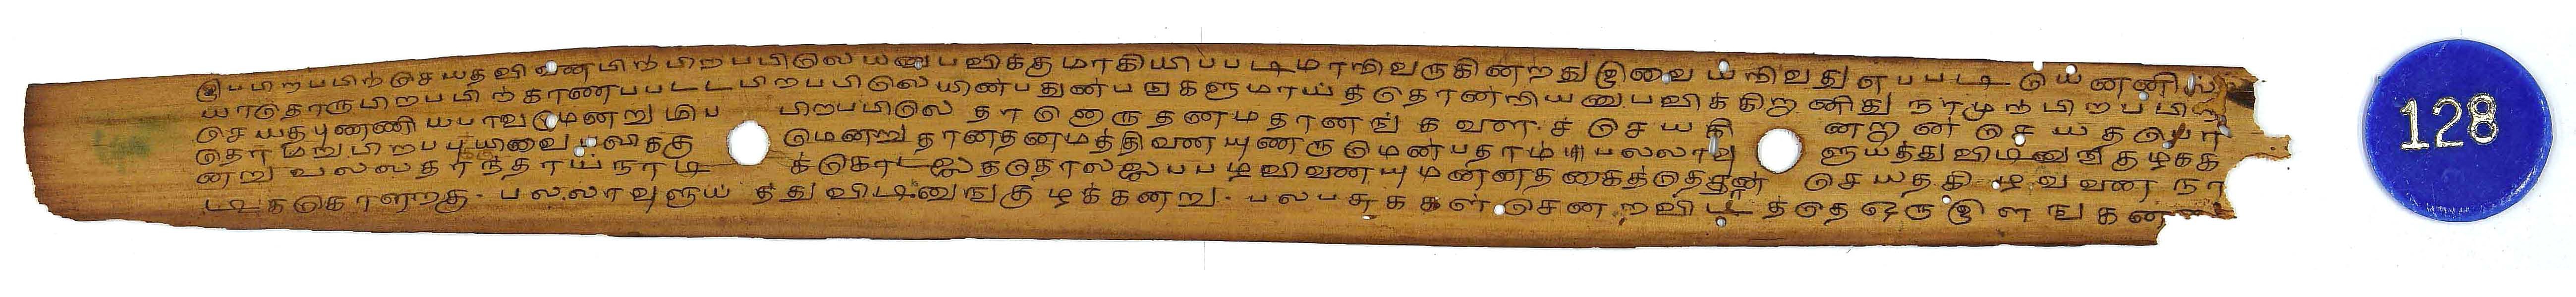 இபபிறபபிற செயத வினைபிற பிறபபிலெ யனுபவிக்குமாகியிபபடிமாறிவருகினறதுஇவை யறிவது எபபடி யெனனில
யாதொருபிறபபிற காணபபடடபிறபபிலெ யின்பதுன்பஙகளுமாய்த்தொன்றியனுபவிக்கிற னிது நாமுற பிறபபிற
செயத புணணிய பாவமென்று மிப பிறபபிலெ தா னெருதனமதானங் களை ச் செயகி ன்றன் செ யத
தெர் மறு பிறபபு யிவை பவிககு மென்று தானதன்மத்தினை யுணரு மென்பதாம் பலலாவு ளுய்த்து விடினுங் குழகக
ன்று வலலதாந்தாய்நாடி க் கொடலைததொல்லைபபழவினை யுமன்னத கைத்தெதன் செயத கி ழவனை நா
டிக கொளறகு. பலலாவுளுய் த்து விடினுங் குழக்கன்று. பல பசுககள் சென்ற விடத்தெ ஒரு இளஙகன்
128